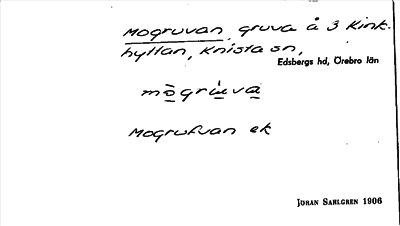 Mogruvan, gruva å 3 Kink-
hyllan, Knista sn,
Edsbergs hd, Örebro län
mògrùva
Mogrufvan ek
JÖRAN SAHLGREN 1906